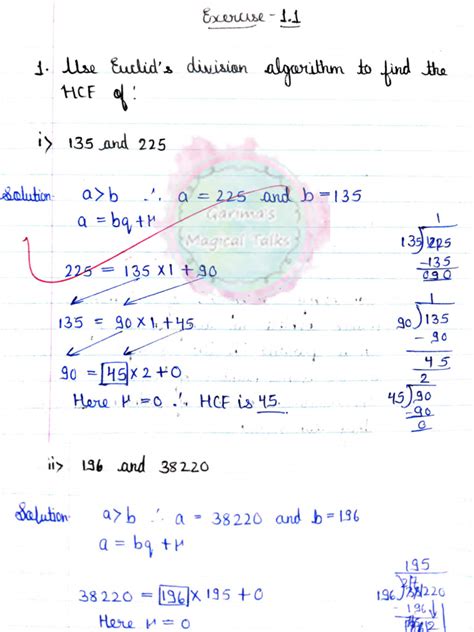 Exercise - 1.1
1. Use Euclid's division algorithm to find the
HCF of:
i> 135 and 225
Solution: a>b ∴ a = 225 and b = 135
a = bq + r
Garima's
Magical Talks
225 = 135 × 1 + 90
135 = 90 × 1 + 45
90 = 45 × 2 + 0
Here r = 0 ∴ HCF is 45.
1
135) 225
-135
090
1
90) 135
- 90
45
2
45) 90
-90
0
ii> 196 and 38220
Solution: a>b ∴ a = 38220 and b = 196
a = bq + r
38220 = 196 × 195 + 0
Here r = 0
195
196) 38220
- 196